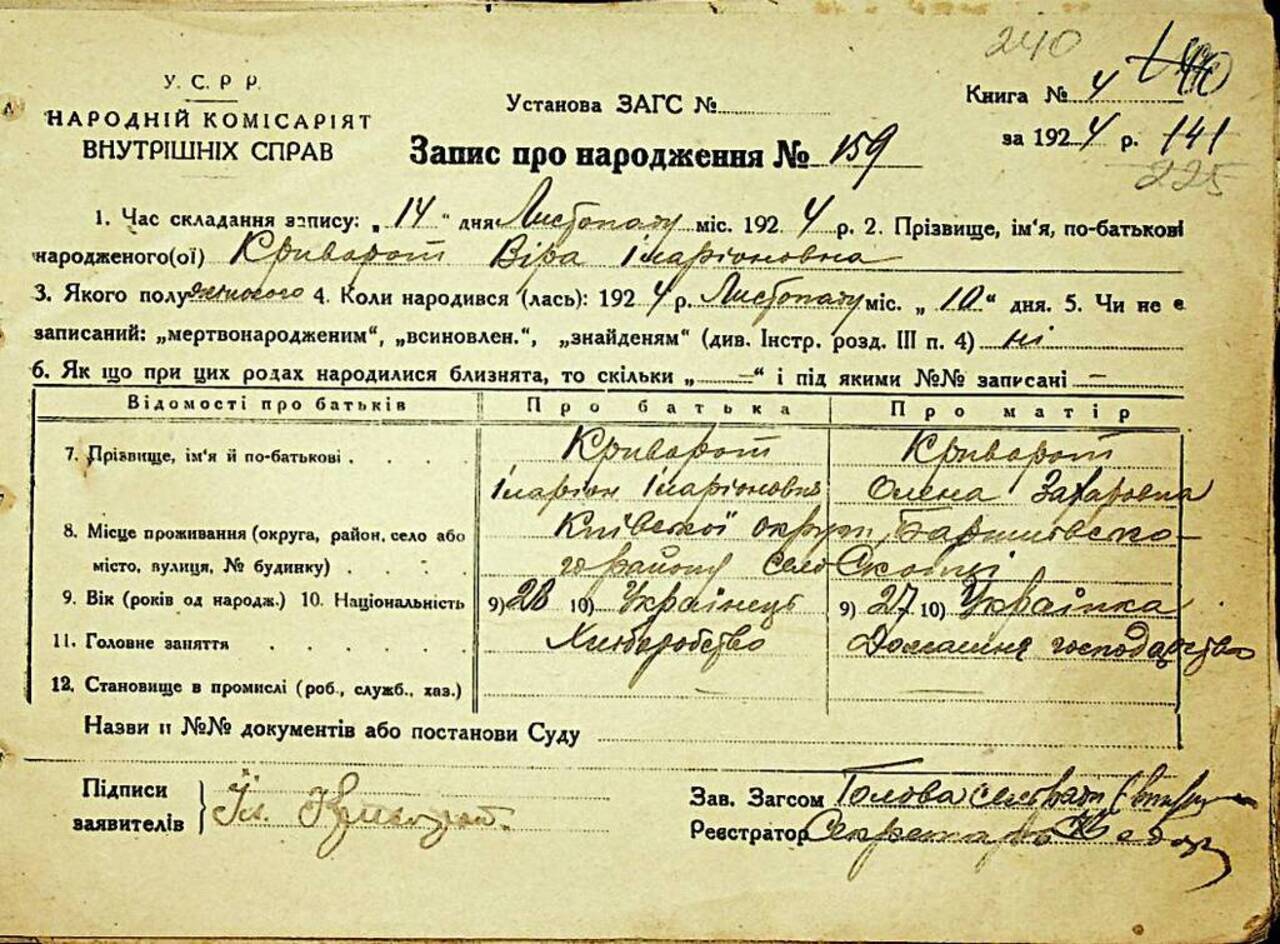 240
У. С. Р. Р.
НАРОДНІЙ КОМІСАРІЯТ
ВНУТРІШНІХ СПРАВ
Установа ЗАГС №
Книга № 4
за 1924 р. 141
225
Запис про народження № 159
1. Час складання запису: „14“ дня Листопаду міс. 1924 р. 2. Прізвище, ім'я, по-батькові
народженого(ої) Криворот Віра Іларіоновна
3. Якого полу жіночого 4. Коли народився (лась): 1924 р. Листопаду міс. „10“ дня. 5. Чи не є
записаний: „мертвонародженим“, „всиновлен.“, „знайденям“ (див. Інстр. розд. III п. 4) ні
6. Як що при цих родах народилися близнята, то скільки „—“ і під якими №№ записані —
Відомості про батьків Про батька Про матір
7. Прізвище, ім'я й по-батькові . . . . Криворот Криворот
Іларіон Іларіонович Олена Захаровна
8. Місце проживання (округа, район, село або Київської округи, Баришівсько-
місто, вулиця, № будинку) . . . . го району село Скопці
9. Вік (років од народж.) 10. Національність 9) 28 10) Українець 9) 27 10) Українка
11. Головне заняття . . . . . . Хліборобство Домашнє господарство
12. Становище в промислі (роб., служб., хаз.) — —
Назви и №№ документів або постанови Суду
Підписи
заявителів
Іл. Криворот.
Зав. Загсом Голова сельради
Реєстратор Секретарь